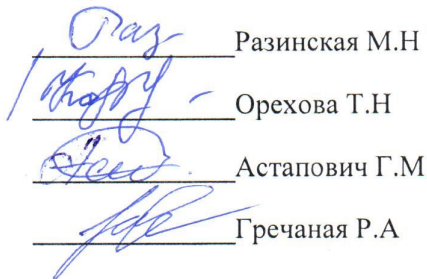 Разинская М.Н
Орехова Т.Н
Астапович Г.М
Гречаная Р.А